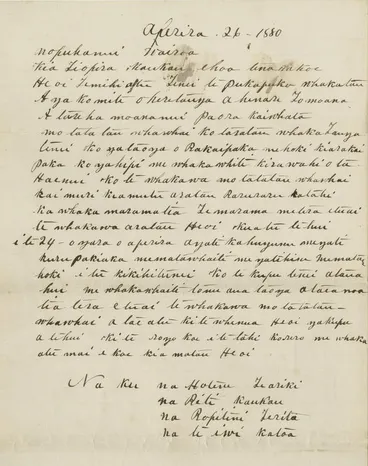 Aperira . 26 - 1880
nopuhanui Wairoa
kia Ziopira Kaukau e hoa tina
Heoi Zemihi Zenei te pukapuka whakatau
A ya komiti o heretaunya a henare Zomoana
A Wi moananui Paora kaiwhata
mo tatu tau whawhai ko tatatau whaka Zanya
tenei ko ya taoya o Rakaipaka ne hoki kia
paka ko ya hipi me whakawhiti kira wahi o te
Haenui ko te whakawa mo tatatau whawhai
kai muri kiamutu aratau Raruraru katahi
ka whaka maramatia Ze marama metera
te whakawa aratau Heoi kua tu te hui
i te 24 - o yara o aperira ayati kahuyunu me yati
kurupakiaka me matawhaiti me yatehine
hoki i tu ki ki ko te kupu tenei atana
hui me whakakkaiti tonu ana taoya atana noa
tia tera e te whakawa mo ta tatau
whawhai a tae atu ki te whenua Heoi ya kupu
a te hui ki te royo koe i te tahi korero me whaka
atu mai e koe kia matau Heoi
Na ku na Hotene Zeariki
na Riti kaukau
na Ropitini Zerita
na te iwi katoa